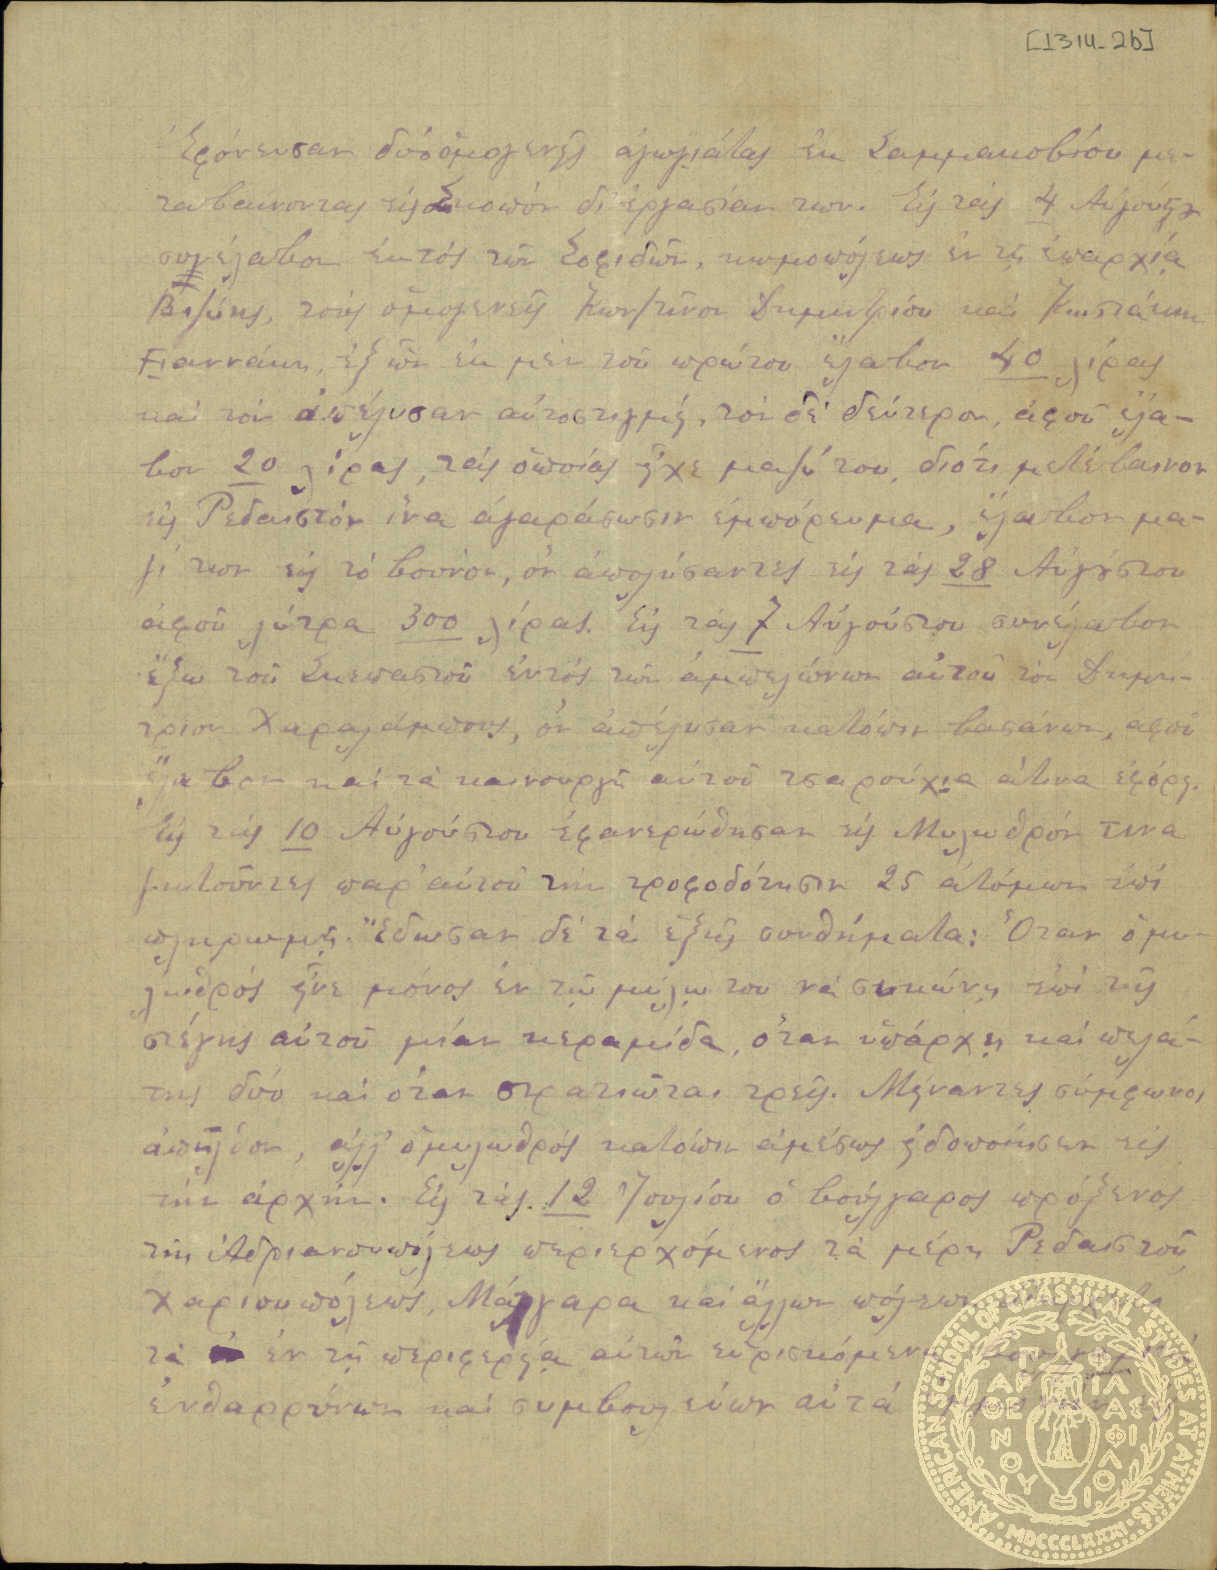 [1314-2b]
ἐφόνευσαν δύο ὁμογενεῖς ἀγωγιάτας ἐκ Σαμμακοβίου με-
ταβαίνοντας εἰς Σκοπόν δι' ἐργασίαν των. Εἰς τάς 4 Αὐγούστου
συνέλαβον ἐκτός τῶν Σοφιδῶν, κωμοπόλεως ἐν τῇ ἐπαρχίᾳ
Βιζύης, τούς ὁμογενεῖς Κων/τῖνον Δημητρίου καί Κωστάκην
Γιαννάκη, ἐξ ὧν ἐκ μέν τοῦ πρώτου ἔλαβον 40 λίρας
καί τόν ἀπέλυσαν αὐτοστιγμεί, τόν δέ δεύτερον, ἀφοῦ ἔλα-
βον 20 λίρας, τάς ὁποίας εἶχε μαζύ του, διότι μετέβαινον
εἰς Ραιδεστόν ἵνα ἀγαράσωσιν ἐμπόρευμα, ἔλαβον μα-
ζί των εἰς τό βουνόν, ὅν ἀπολύσαντες εἰς τάς 28 Αὐγούστου
ἀφοῦ λύτρα 300 λίρας. Εἰς τάς 7 Αὐγούστου συνέλαβον
ἔξω τοῦ Σκεπαστοῦ ἐντός τῶν ἀμπελώνων αὐτοῦ τόν Δημή-
τριον Χαραλάμπους, ὅν ἀπέλυσαν κατόπιν βασάνων, ἀφοῦ
ἔλαβον καί τά καινουργῆ αὐτοῦ τσαρούχια ἅτινα ἐφόρει.
Εἰς τάς 10 Αὐγούστου ἐφανερώθησαν εἰς Μυλωθρόν τινα
ζητοῦντες παρ' αὐτοῦ τήν τροφοδότησιν 25 ἀτόμων ἐπί
πληρωμῇ. Ἔδωσαν δέ τά ἑξῆς συνθήματα: Ὅταν ὁ μυ-
λωθρός εἶνε μόνος ἐν τῷ μύλῳ του νά σηκώνῃ ἐπί τῆς
στέγης αὐτοῦ μίαν κεραμίδα, ὅταν ὑπάρχῃ καί πελά-
της δύο καί ὅταν στρατιῶται τρεῖς. Μείναντες σύμφωνοι
ἀπῆλθον, ἀλλ' ὁ μυλωθρός κατόπιν ἀμέσως εἰδοποίησεν εἰς
τήν ἀρχήν. Εἰς τάς 12 Ἰουλίου ὁ βούλγαρος πρόξενος
τῆς Ἀδριανουπόλεως περιερχόμενος τά μέρη Ρεδαιστοῦ
Χαριουπόλεως, Μάλγαρα καί ἄλλων πόλεων
τά ἐν τῇ περιφερείᾳ αὐτῶν εὑρισκόμενα
ἐνθαρρύνων καί συμβουλεύων αὐτά
AMERICAN SCHOOL OF CLASSICAL STUDIES AT ATHENS
MDCCCLXXXI